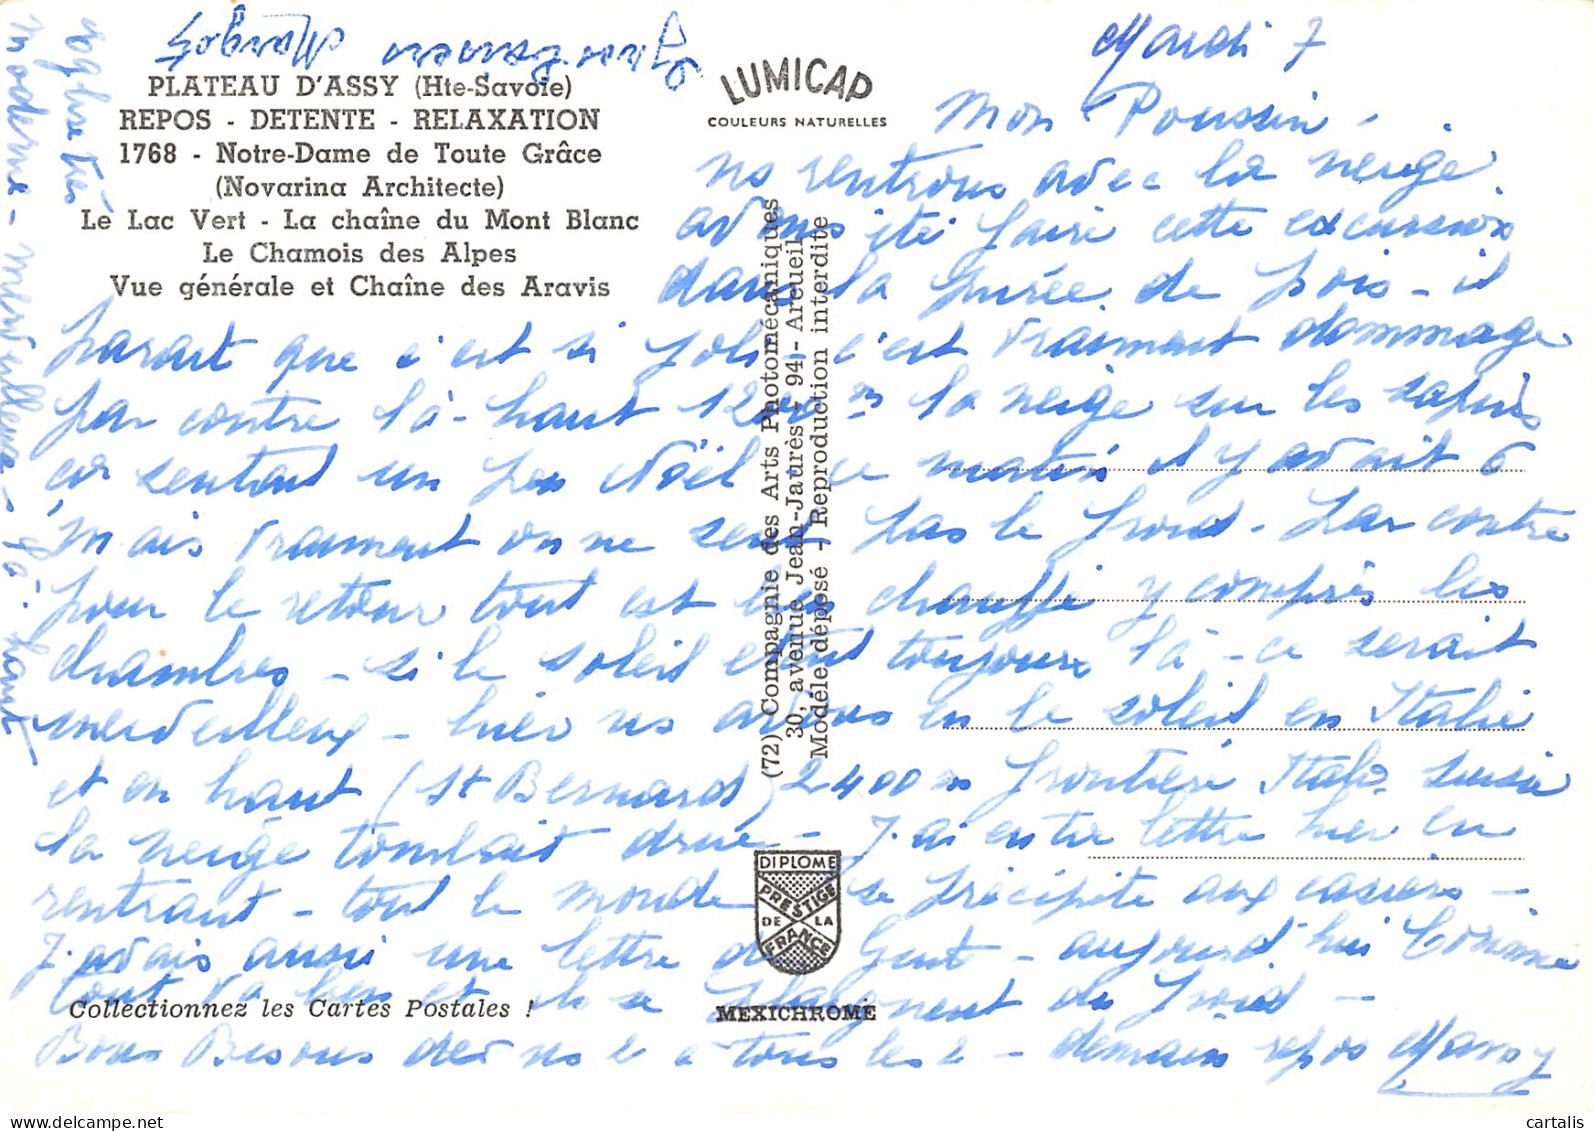 PLATEAU D'ASSY (Hte-Savoie)
REPOS - DETENTE - RELAXATION
1768 - Notre-Dame de Toute Grâce
(Novarina Architecte)
Le Lac Vert - La chaîne du Mont Blanc
Le Chamois des Alpes
Vue générale et Chaîne des Aravis
LUMICAP
COULEURS NATURELLES
Mardi 7
Mon Poussin -
ns rentrons avec la neige.
avons été faire cette excursion
dans la purée de pois - il
parait que c'est si joli c'est vraiment dommage
par contre là-haut 1200 m la neige sur les sapins
on sentait un peu Noël - ce matin il y avait 6
mais vraiment on ne sent pas le froid. Par contre
pour le retour tout est bien chauffé y compris les
chambres - si le soleil était toujours là - ce serait
merveilleux - hier ns avons eu le soleil en Italie
et en haut (St Bernard) 2400 m frontière Italo Suisse
la neige tombait drue - J'ai eu ta lettre hier en
rentrant - tout le monde se précipite aux casiers -
J'avais aussi une lettre de Gent - aujourd'hui Comme
tout va bien et ils se plaignent du froid -
Bons Bisous de ns 2 à tous les 2 - demain repos Mamy
église très
moderne - merveilleuse - là-haut
(72) Compagnie des Arts Photomécaniques
30, avenue Jean-Jaurès - 94 - Arcueil
Modèle déposé - Reproduction interdite
DIPLOME
PRESTIGE
DE LA
FRANCE
Collectionnez les Cartes Postales !
MEXICHROME
cartalis